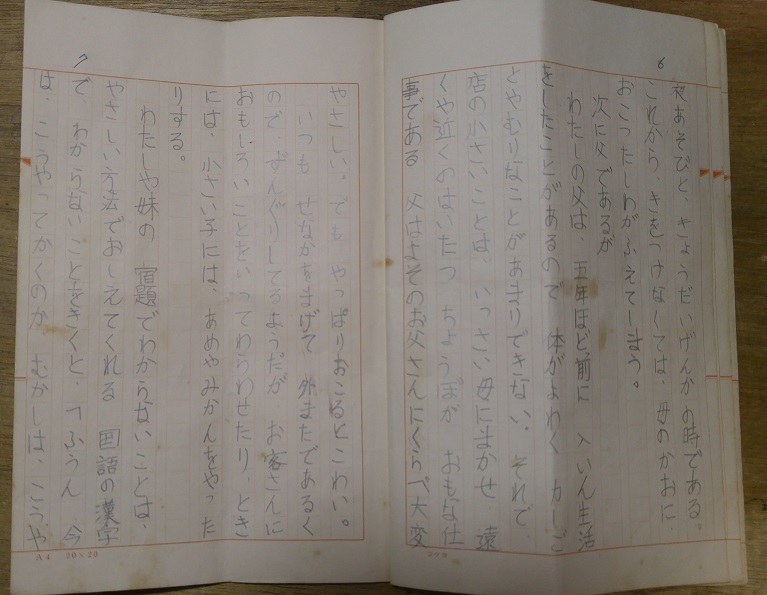 6
夜あそびと、きょうだいげんかの時である
これから、きをつけなくては、母のかおに、
おこったしわがふえてしまう。
次に父であるが
わたしの父は、五年ほど前に 入いん生活
をしたことがあるので 体がよわく 力しご
とやむりなことがあまりできない。それで、
店の小さいことは、いっさい母にまかせ 遠
くや近くのはいたつ ちょうぼが おもな仕
事である 父はよそのお父さんにくらべ大変
7
やさしい。でも やっぱりおこるとこわい。
いつも せなかをまげて、外またであるく
ので ずんぐりしてるようだが、お客さんに
おもしろいことをいってわらわせたり、とき
には、小さい子には、あめやみかんをやった
りする。
わたしや妹の 宿題でわからないことは、
やさしい方法でおしえてくれる 国語の漢字
で、わからないことをきくと、「ふうん 今
は、こうやってかくのか むかしは、こうや
A4 20×20